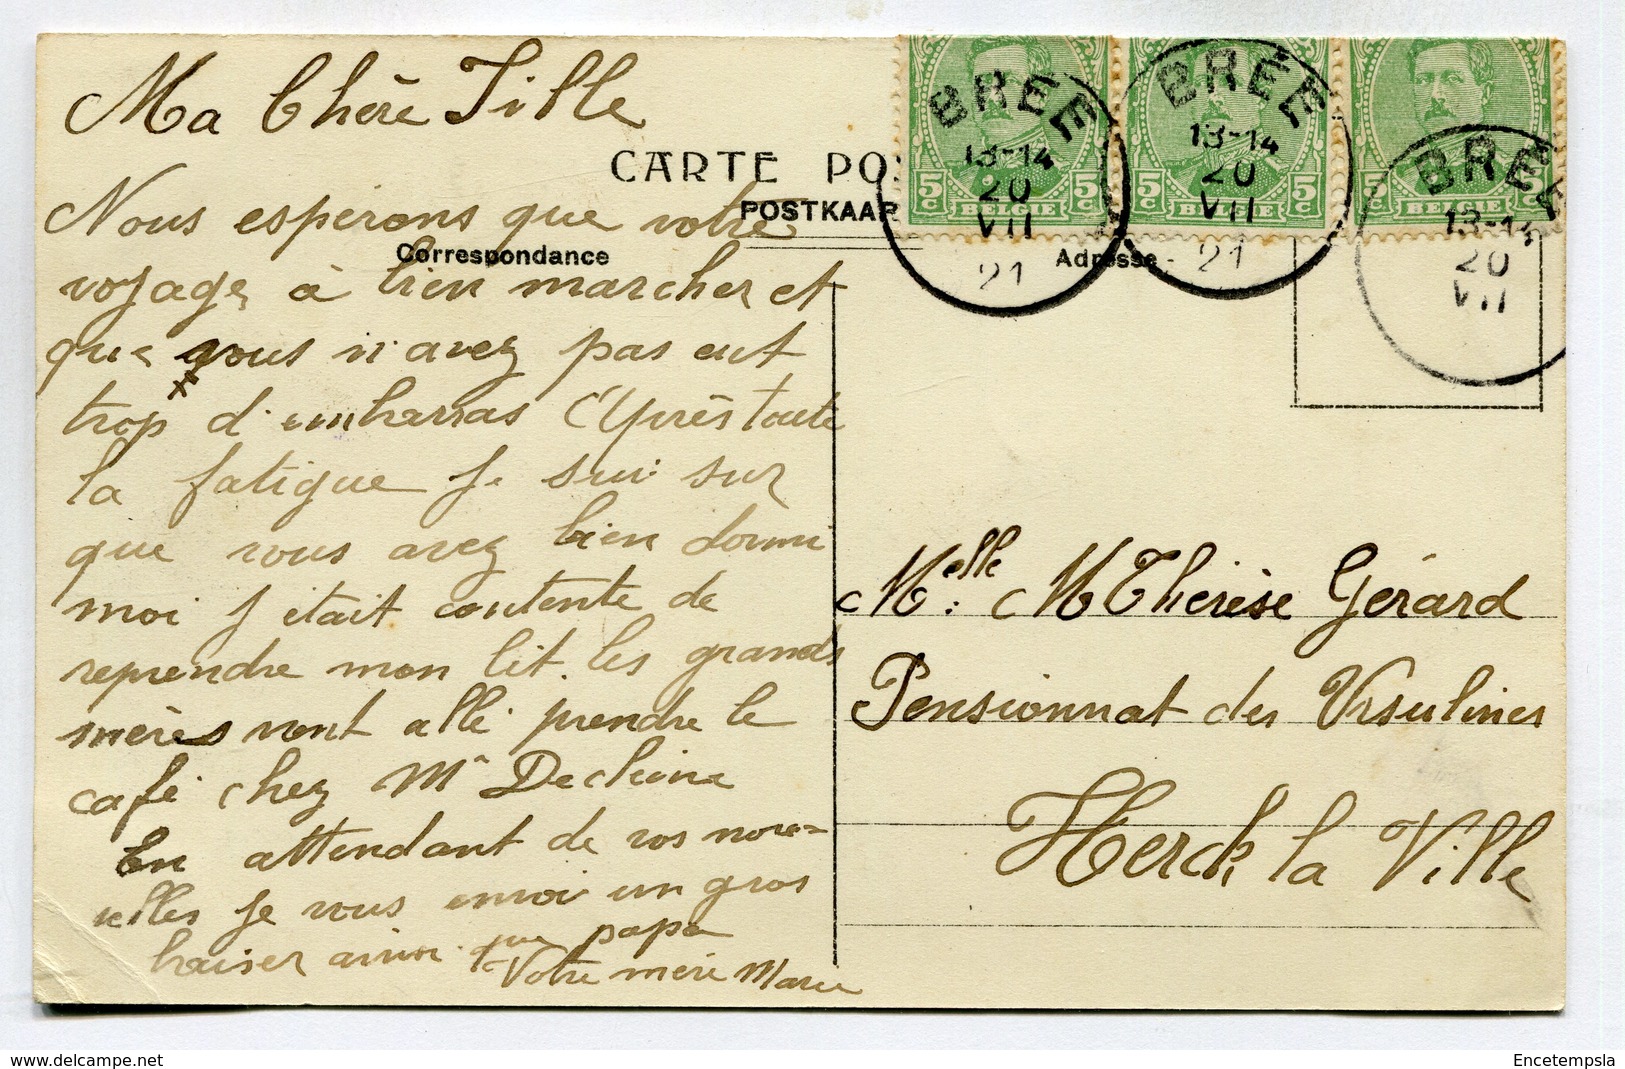 Ma Chère Fille
CARTE PO
POSTKAAR
Correspondance
Adresse
Nous esperons que votre
voyage à bien marcher et
que vous n'avez pas eut
trop d'embarras Après toute
la fatigue je sui sur
que vous avez bien dormi
moi j'etait contente de
reprendre mon lit. les grands
mères vont allé prendre le
café chez Mr
En attendant de vos nouv=
elles je vous envoi un gros
baiser ainsi que papa
Votre mère Marie
5c BELGIE 5c
5c BELGIE 5c
5c BELGIE 5c
BREE
13-14
20
VII
21
BREE
13-14
20
VII
21
BREE
13-14
20
VII
Melle: M Thérèse Gérard
Pensionnat des Ursulines
Herck la Ville
Encetempsla